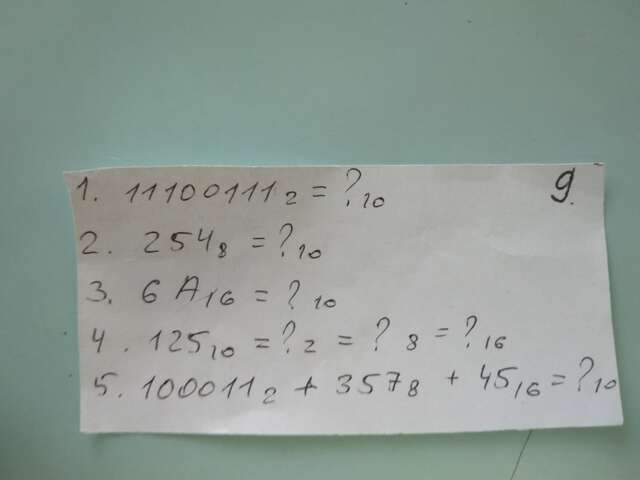 1. 11100111₂ = ?₁₀ 9.
2. 254₈ = ?₁₀
3. 6A₁₆ = ?₁₀
4. 125₁₀ = ?₂ = ?₈ = ?₁₆
5. 100011₂ + 357₈ + 45₁₆ = ?₁₀